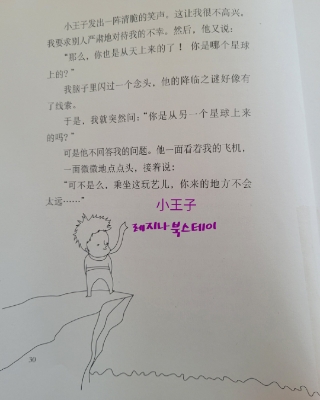 小王子发出一阵清脆的笑声。这让我很不高兴，
我要求别人严肃地对待我的不幸。然后，他又说：
“那么，你也是从天上来的了！你是哪个星球
上的？”
我脑子里闪过一个念头，他的降临之谜好像有
了线索。
于是，我就突然问：“你是从另一个星球上来
的吗？”
可是他不回答我的问题。他一面看着我的飞机，
一面微微地点点头，接着说：
“可不是么，乘坐这玩艺儿，你来的地方不会
太远……”
小王子
레지나 북스테이
30